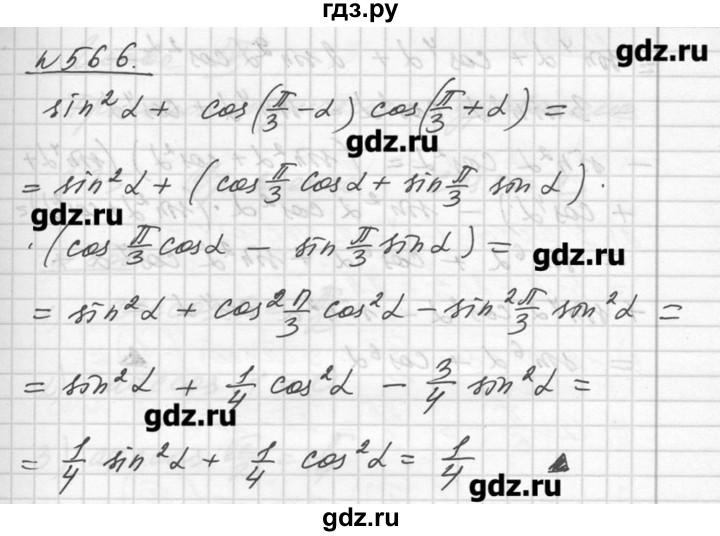 гдз.ру
№566.
gdz.ru
sin²α + cos(π/3 - α) cos(π/3 + α) =
gdz.ru
= sin²α + (cos π/3 cosα + sin π/3 sinα) ·
gdz.ru
· (cos π/3 cosα - sin π/3 sinα) =
gdz.ru
= sin²α + cos² π/3 cos²α - sin² π/3 sin²α =
= sin²α + 1/4 cos²α - 3/4 sin²α =
gdz.ru
= 1/4 sin²α + 1/4 cos²α = 1/4
gdz.ru
gdz.ru